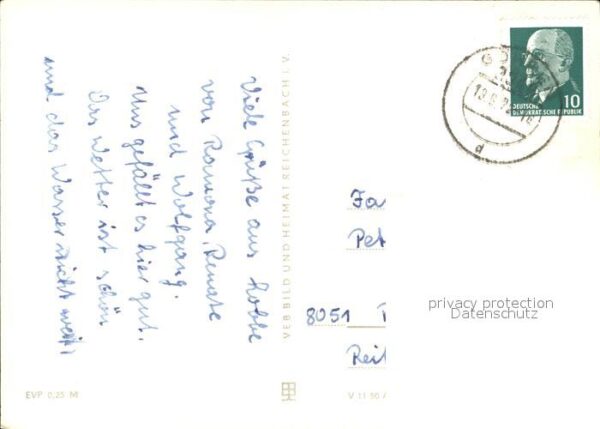 Viele Grüße aus Lobbe
von Ramona, Renate
und Wolfgang.
Uns gefällt es hier gut.
Das Wetter ist schön
und das Wasser nicht weit.
VEB BILD UND HEIMAT REICHENBACH I. V.
DEUTSCHE
DEMOKRATISCHE REPUBLIK
10
d
Fa
Pet
8051
Reit
privacy protection
Datenschutz
EVP 0,25 M
V 11 50